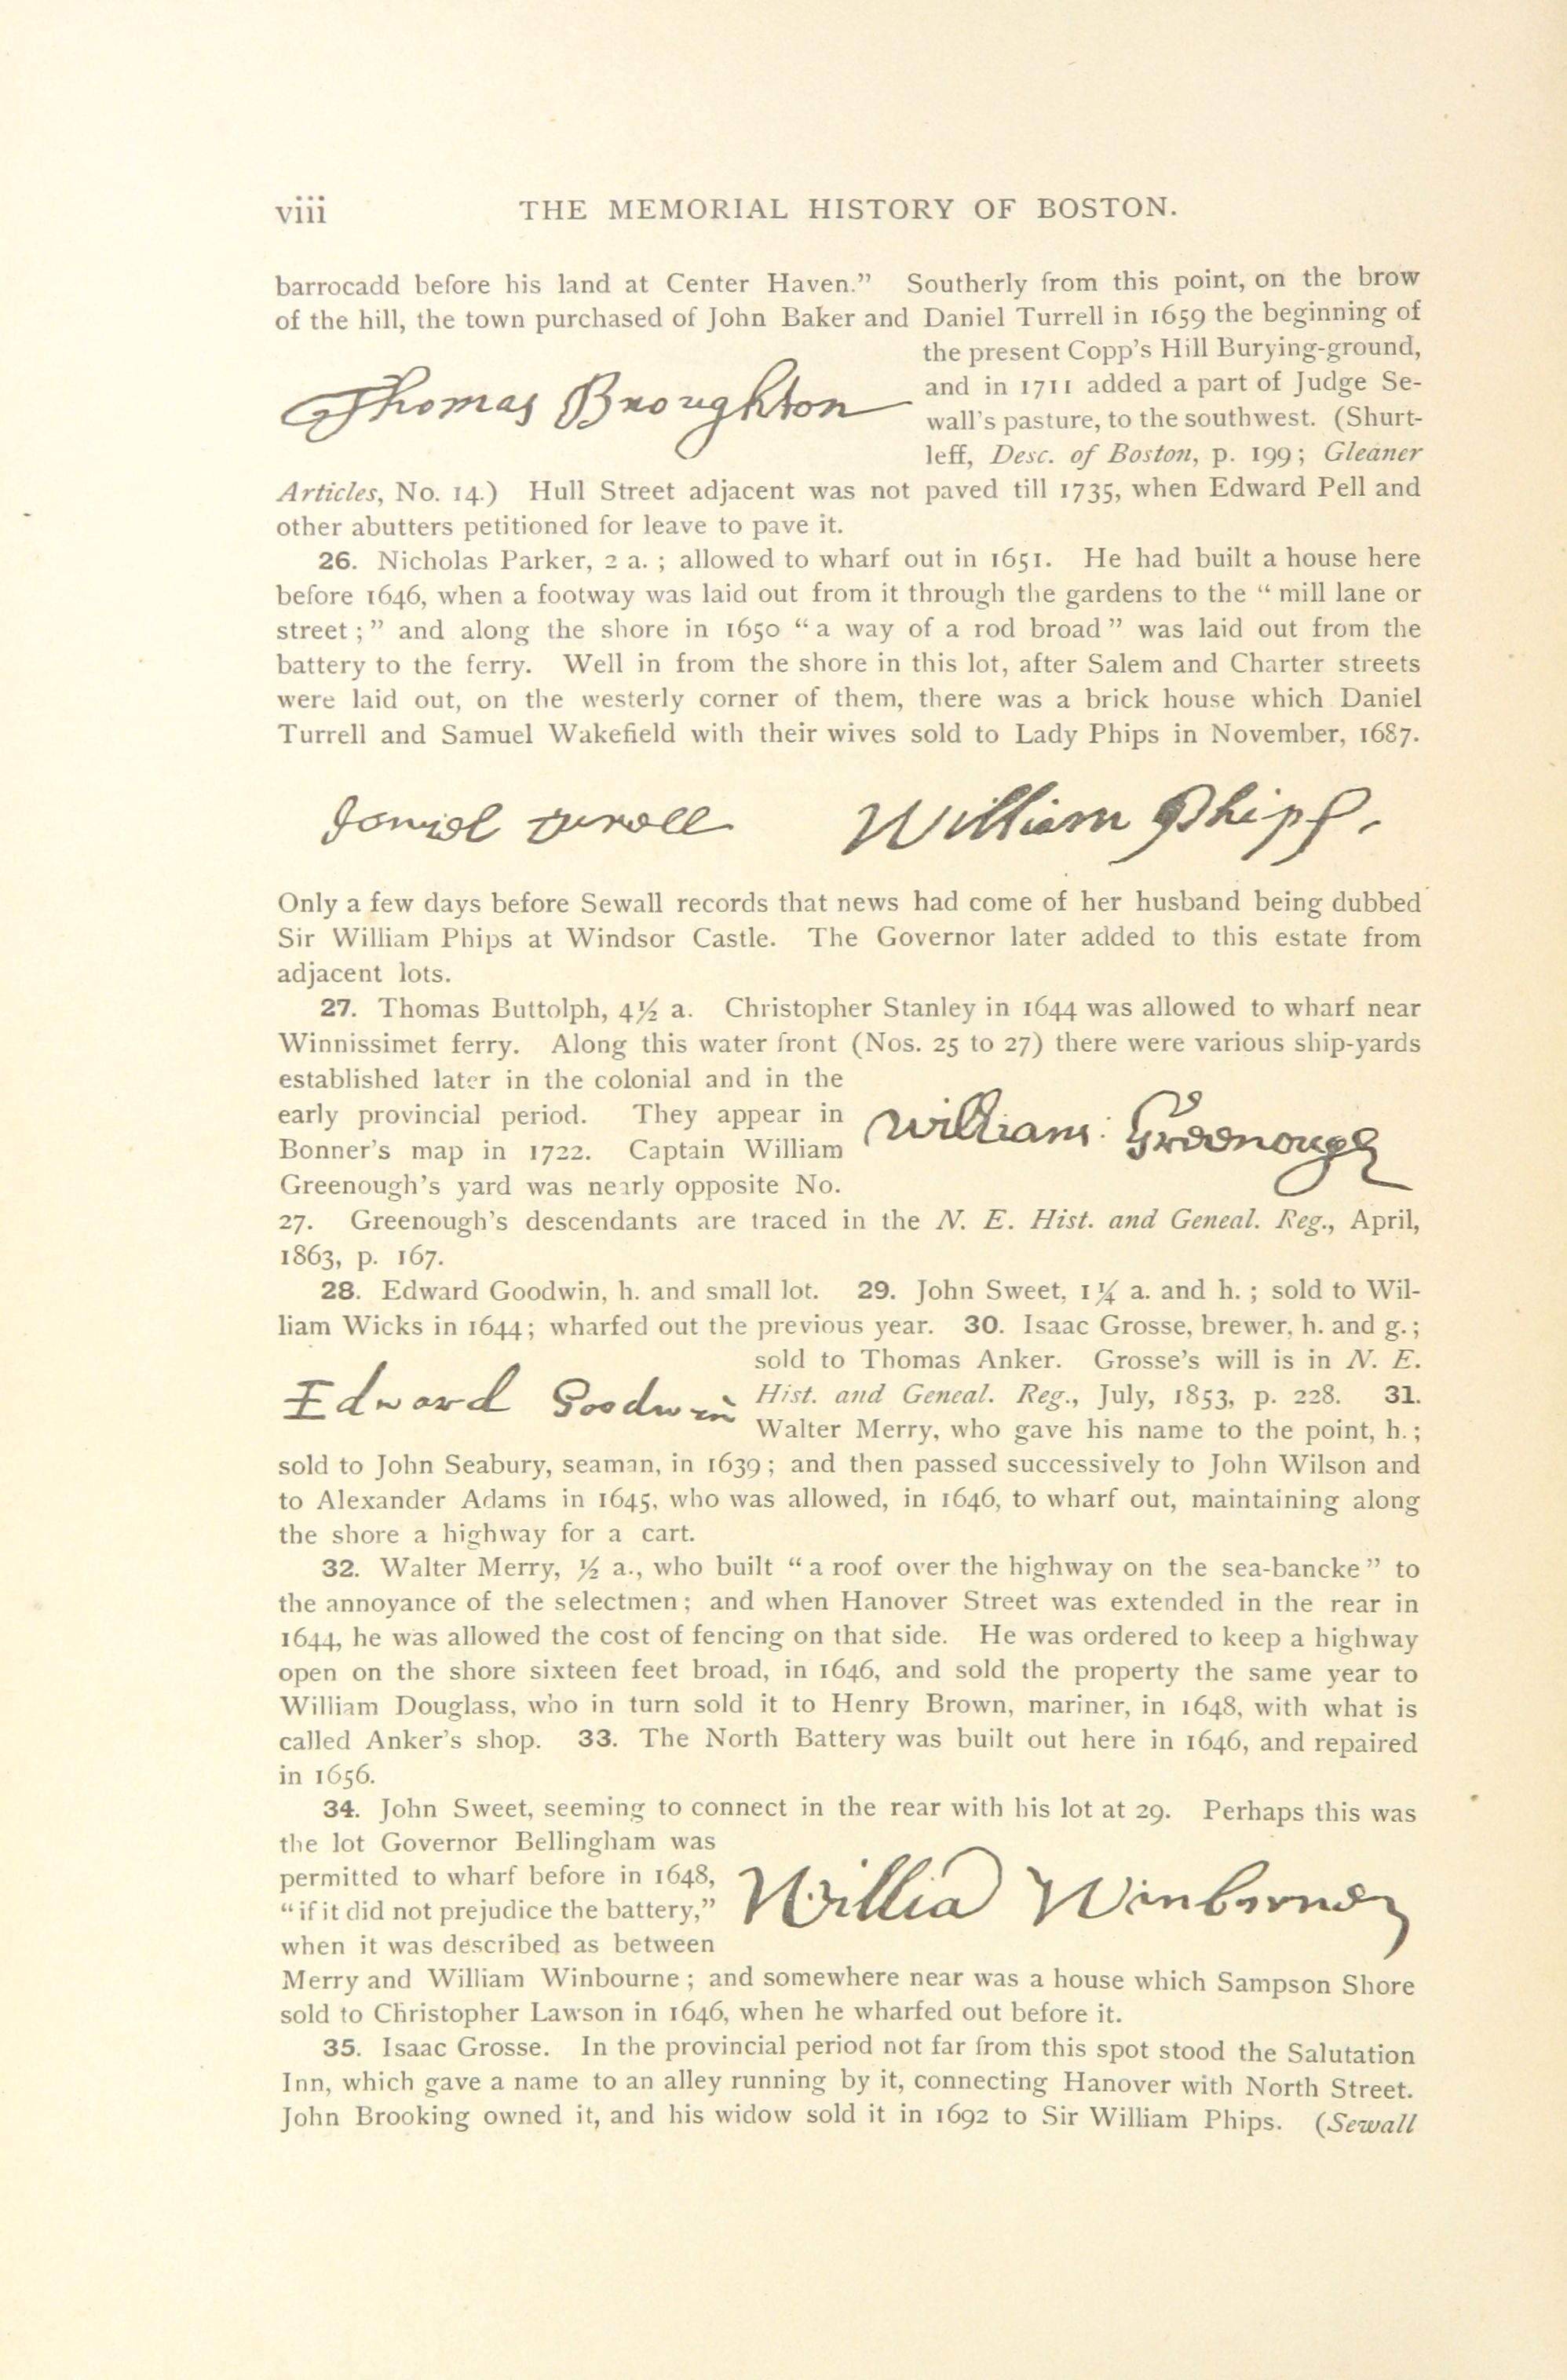 viii THE MEMORIAL HISTORY OF BOSTON.
barrocadd before his land at Center Haven.” Southerly from this point, on the brow
of the hill, the town purchased of John Baker and Daniel Turrell in 1659 the beginning of
the present Copp's Hill Burying-ground,
Thomas Broughton
and in 1711 added a part of Judge Se-
wall's pasture, to the southwest. (Shurt-
leff, Desc. of Boston, p. 199; Gleaner
Articles, No. 14.) Hull Street adjacent was not paved till 1735, when Edward Pell and
other abutters petitioned for leave to pave it.
26. Nicholas Parker, 2 a. ; allowed to wharf out in 1651. He had built a house here
before 1646, when a footway was laid out from it through the gardens to the “ mill lane or
street ; ” and along the shore in 1650 “ a way of a rod broad ” was laid out from the
battery to the ferry. Well in from the shore in this lot, after Salem and Charter streets
were laid out, on the westerly corner of them, there was a brick house which Daniel
Turrell and Samuel Wakefield with their wives sold to Lady Phips in November, 1687.
Daniel Turell William Phips.
Only a few days before Sewall records that news had come of her husband being dubbed
Sir William Phips at Windsor Castle. The Governor later added to this estate from
adjacent lots.
27. Thomas Buttolph, 4½ a. Christopher Stanley in 1644 was allowed to wharf near
Winnissimet ferry. Along this water front (Nos. 25 to 27) there were various ship-yards
established later in the colonial and in the
early provincial period. They appear in
William: Greenough
Bonner's map in 1722. Captain William
Greenough's yard was nearly opposite No.
27. Greenough's descendants are traced in the N. E. Hist. and Geneal. Reg., April,
1863, p. 167.
28. Edward Goodwin, h. and small lot. 29. John Sweet, 1¼ a. and h. ; sold to Wil-
liam Wicks in 1644; wharfed out the previous year. 30. Isaac Grosse, brewer, h. and g. ;
sold to Thomas Anker. Grosse's will is in N. E.
Edward Goodwin
Hist. and Geneal. Reg., July, 1853, p. 228. 31.
Walter Merry, who gave his name to the point, h. ;
sold to John Seabury, seaman, in 1639 ; and then passed successively to John Wilson and
to Alexander Adams in 1645, who was allowed, in 1646, to wharf out, maintaining along
the shore a highway for a cart.
32. Walter Merry, ½ a., who built “ a roof over the highway on the sea-bancke ” to
the annoyance of the selectmen ; and when Hanover Street was extended in the rear in
1644, he was allowed the cost of fencing on that side. He was ordered to keep a highway
open on the shore sixteen feet broad, in 1646, and sold the property the same year to
William Douglass, who in turn sold it to Henry Brown, mariner, in 1648, with what is
called Anker's shop. 33. The North Battery was built out here in 1646, and repaired
in 1656.
34. John Sweet, seeming to connect in the rear with his lot at 29. Perhaps this was
the lot Governor Bellingham was
permitted to wharf before in 1648,
Willia Winborne
“ if it did not prejudice the battery,”
when it was described as between
Merry and William Winbourne ; and somewhere near was a house which Sampson Shore
sold to Christopher Lawson in 1646, when he wharfed out before it.
35. Isaac Grosse. In the provincial period not far from this spot stood the Salutation
Inn, which gave a name to an alley running by it, connecting Hanover with North Street.
John Brooking owned it, and his widow sold it in 1692 to Sir William Phips. (Sewall